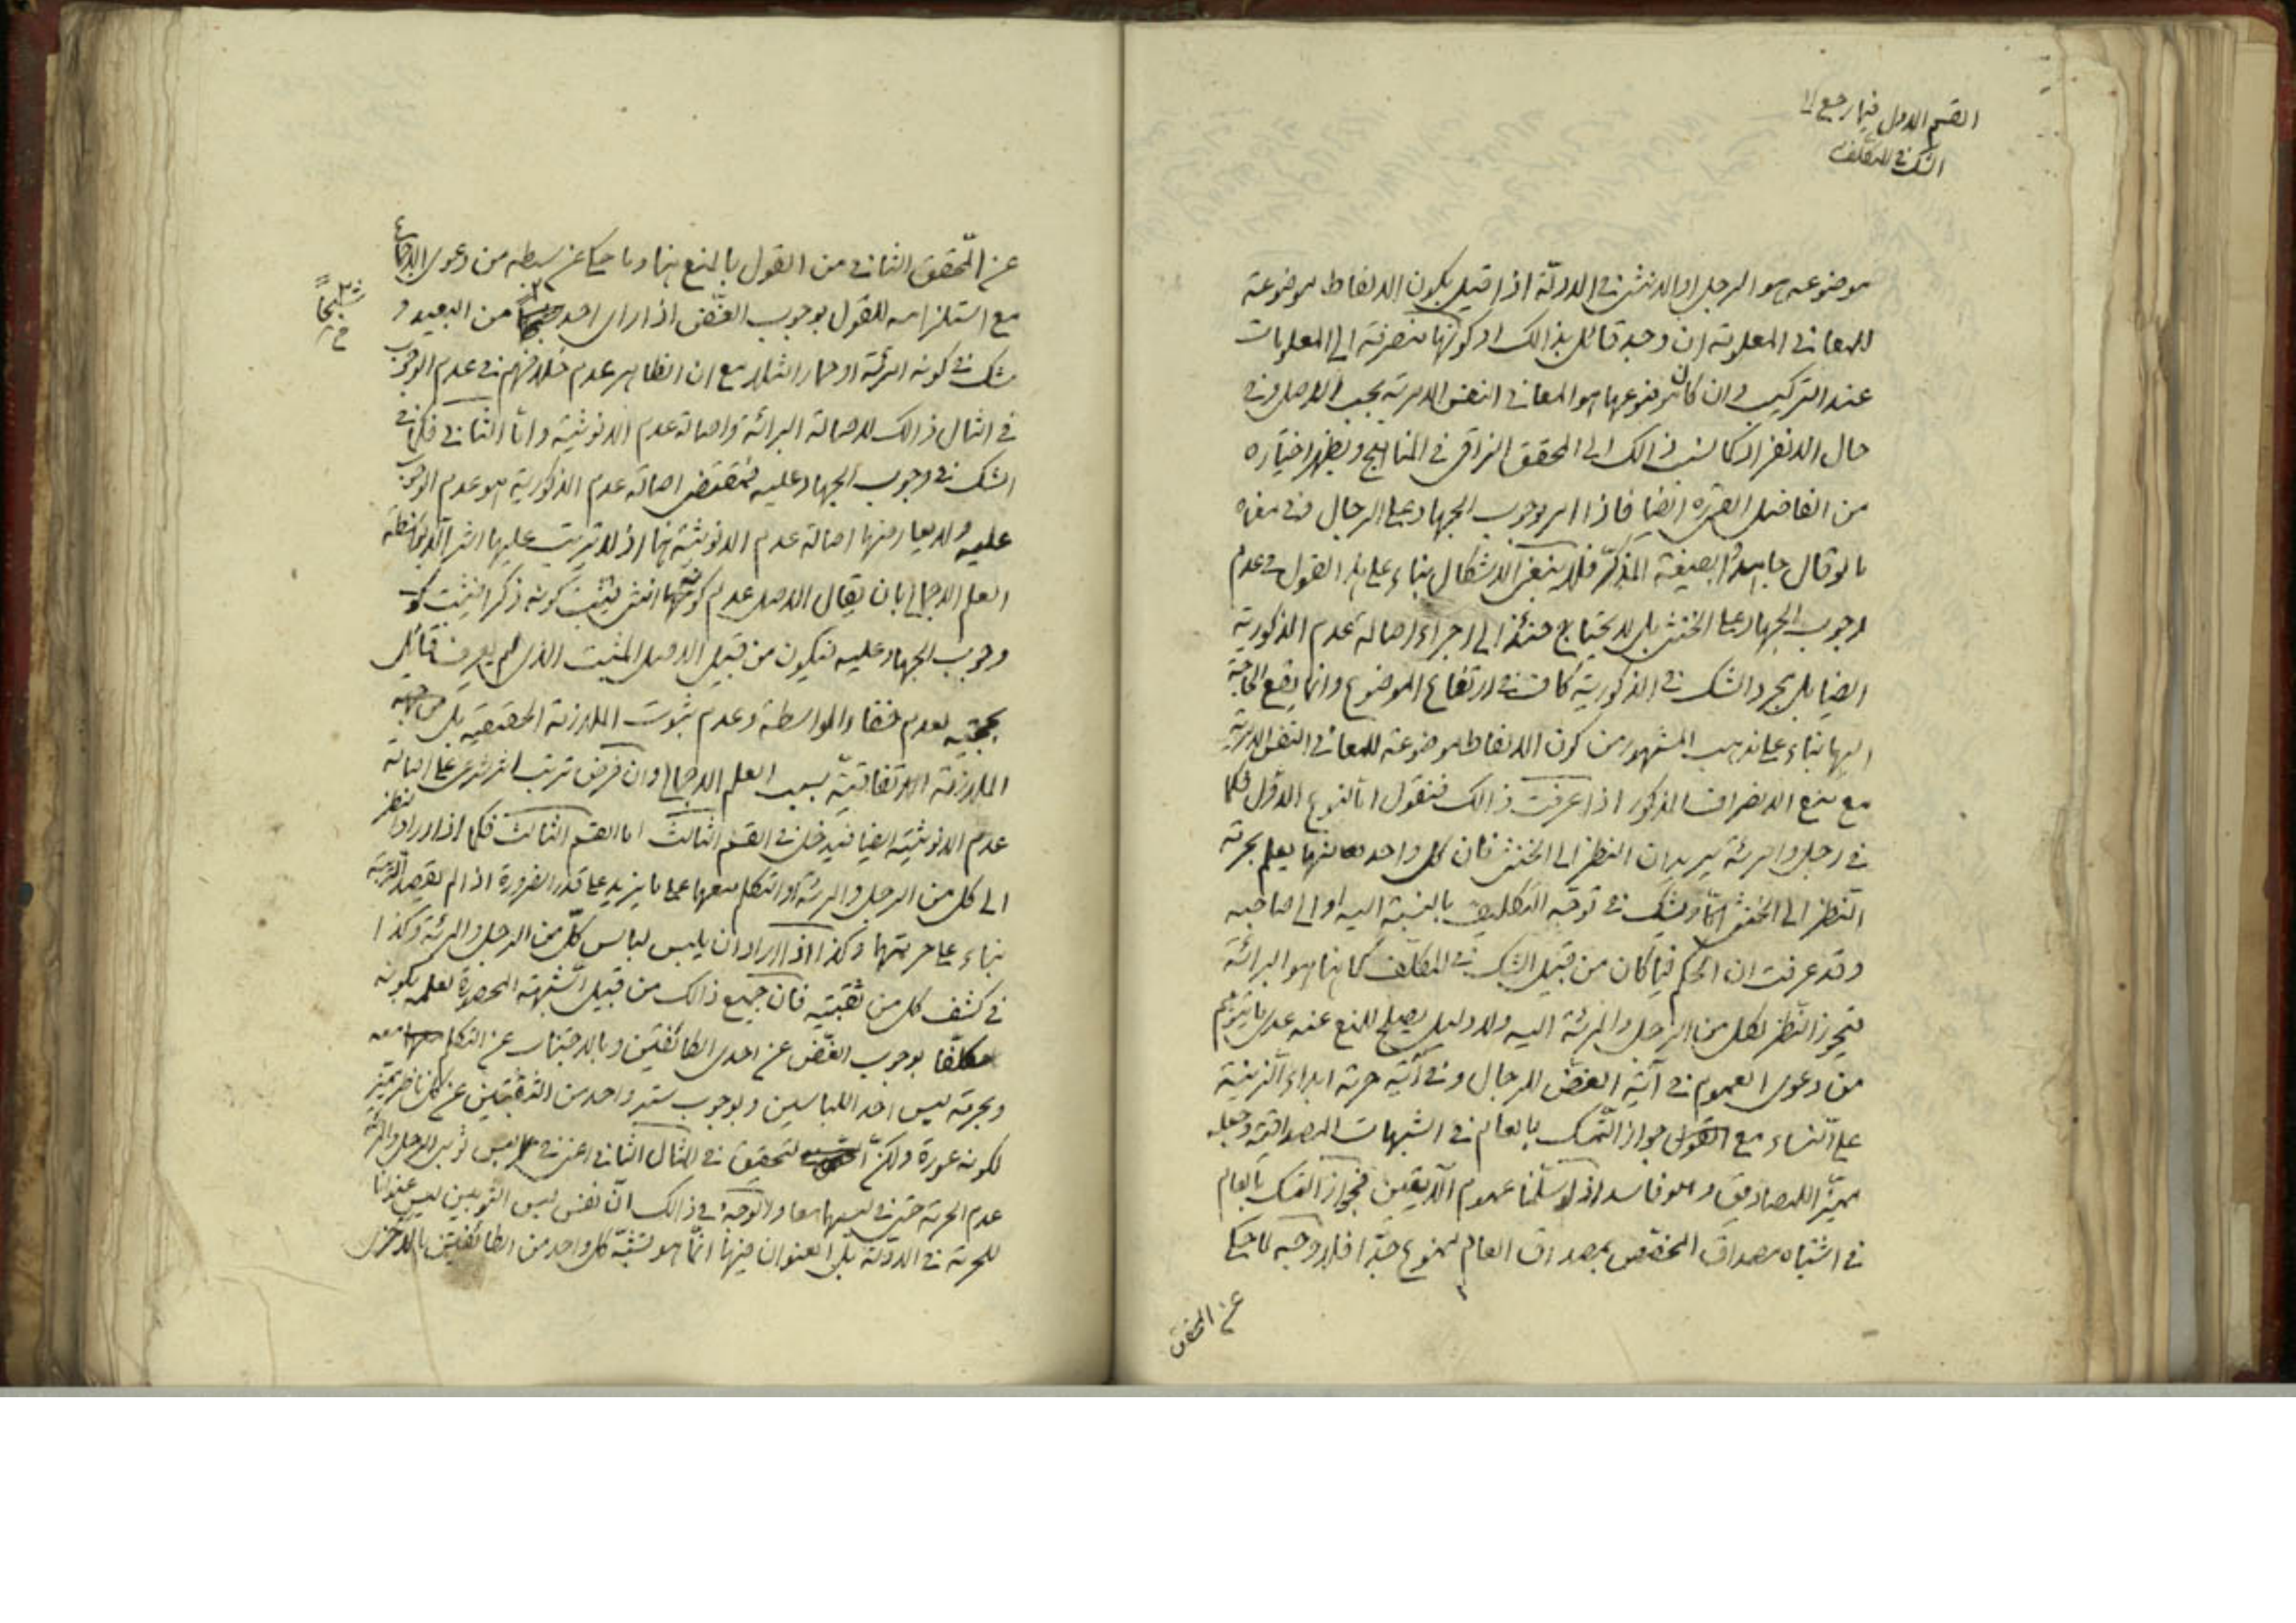 القسم الاول فيما رجع الى
الشك في المكلف
موضوعه هو الرجل او الانثى في الادلة اذا قيل بكون الالفاظ موضوعة
للمعاني المعلومة ان وجد قائل بذالك او كونها منصرفة الى المعلومات
عند التركيب وان كان موضوعها هو المعاني النفس الامرية بحسب الاصل وفي
حال الانفراد كما نسب ذالك الى المحقق النراقي في المناهج ويظهر اختياره
من الفاضل القمي ره ايضا فاذا امر بوجوب الجهاد على الرجال فمعناه
ما لو قال جاهدوا بصيغة المذكر فلا ينبغي الاشكال بناء على هذا القول في عدم
وجوب الجهاد على الخنثى بل لا يحتاج حينئذ الى اجراء اصالة عدم الذكورية
ايضا بل مجرد الشك في الذكورية كاف في ارتفاع الموضوع وانما يقع الحاجة
اليها بناء على مذهب المشهور من كون الالفاظ موضوعة للمعاني النفس الامرية
مع منع الانصراف المذكور اذا عرفت ذالك فنقول اما النوع الاول فكما
في رجل وامرئة يريدان النظر الى الخنثى فان كل واحد منهما يعلم بحرمة
النظر الى الخنثى اما ويشك في توجه التكليف بالنسبة اليه او الى صاحبه
وقد عرفت ان الحكم فيما كان من قبيل الشك في المكلف كما هنا هو البرائة
فيجوز النظر لكل من الرجل والمرئة اليه ولا دليل يصلح للمنع عنه عدى ما يتوهم
من دعوى العموم في آية الغض للرجال وفي آية حرمة ابداء الزينة
على النساء مع جواز التمسك بالعام في الشبهات المصداقية وجعله
مميزا للمصاديق وهو فاسد اذ لو سلمنا عموم الآيتين فجواز التمسك بالعام
في اشتباه مصداق المخصص بمصداق العام ممنوع جدا فلا وجه لما حكى
عن المحقق
عن المحقق الثاني من القول بالمنع هنا وما حكى عن سبطه من دعوى الاجماع
مع استلزامه للقول بوجوب الغض اذا راى احد من البعيد و
شبحا
شك في كونه امرئة او حمارا مثلا مع ان الظاهر عدم خلافهم في عدم الوجوب
في المثال ذالك لاصالة البرائة واصالة عدم الانوثية واما الثاني فكما في
الشك في وجوب الجهاد عليه فمقتضى اصالة عدم الذكورية هو عدم الوجوب
عليه ولا يعارضها اصالة عدم الانوثية هنا اذ لا يترتب عليها اثر الا بواسطة
العلم الاجمالي بان يقال الاصل عدم كونه انثى فيثبت كونه ذكرا فيثبت
وجوب الجهاد عليه فيكون من قبيل الاصل المثبت الذي لم يعرف قائل
بحجيته لعدم خفاء الواسطة وعدم ثبوت الملازمة الحقيقية بل من جهة
الملازمة الاتفاقية بسبب العلم الاجمالي وان فرض ترتب اثر شرعي على اصالة
عدم الانوثية ايضا فيدخل في القسم الثالث اما القسم الثالث فكما اذا اراد النظر
الى كل من الرجل والمرئة او التكلم معهما على ما يزيد على قدر الضرورة اذا لم يقصد الريبة
بناء على حرمتهما وكذا اذا اراد ان يلبس لباس كل من الرجل والمرئة وكذا
في كشف كل من ثقبتيه فان جميع ذالك من قبيل الشبهة المحصورة لعلمه بكونه
مكلفا بوجوب الغض عن احدى الطائفتين وبالاجتناب عن التكلم معه
وبحرمة لبس احد اللباسين وبوجوب ستر واحد من الثقبتين عن كل ناظر مميز
لكونه عورة ولكن التحقيق في المثال الثاني اعني في لبس ثوبي الرجل والمرئة
عدم الحرمة حتى في لبسهما معا والوجه في ذالك ان نفس لبس الثوبين ليس عنوانا
للحرمة في الادلة بل العنوان فيها انما هو تشبه كل واحد من الطائفتين بالاخرى